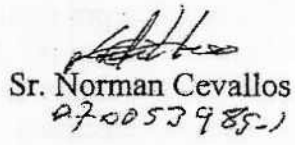 Sr. Norman Cevallos
070053985-1